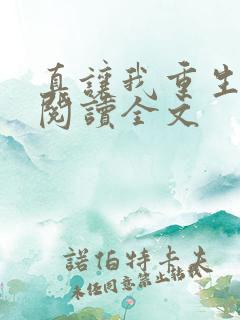 直讓我重生
閱讀全文
諾伯特卡夫
未任同意禁止詁載